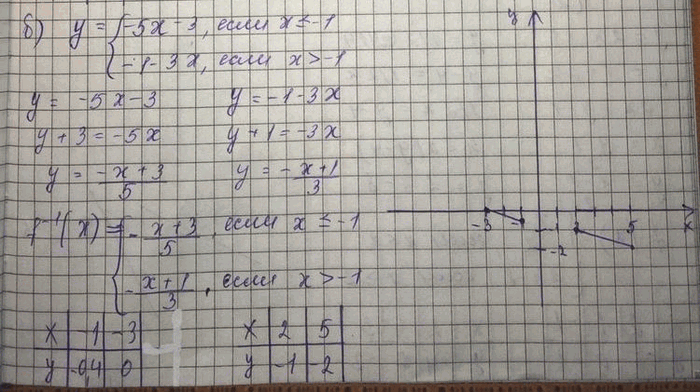 б) y = { -5x - 3, если x ≤ -1
-1 - 3x, если x > -1
y = -5x - 3    y = -1 - 3x
y + 3 = -5x    y + 1 = -3x
y = -x + 3 / 5    y = - x + 1 / 3
f⁻¹(x) = { - x + 3 / 5, если x ≤ -1
- x + 1 / 3, если x > -1
x | -1 | -3    x | 2 | 5
y | -0,4 | 0    y | -1 | 2
y
-3 -1 5 x
-2